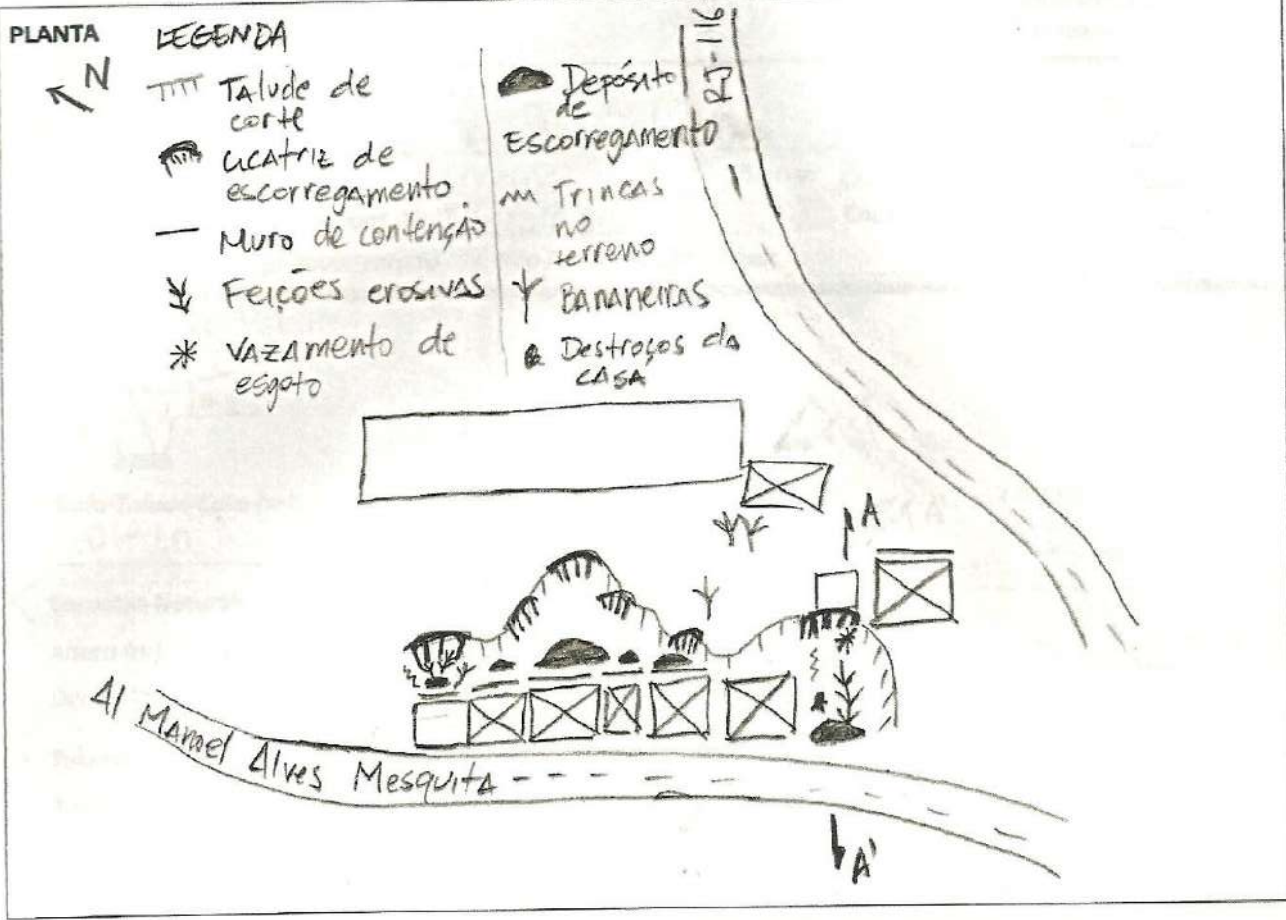 PLANTA
N
LEGENDA
Talude de
corte
cicatriz de
escorregamento.
Muro de contenção
Feições erosivas
Vazamento de
esgoto
Depósito
de
Escorregamento
Trincas
no
terreno
Bananeiras
Destroços da
casa
RJ-116
A
Al Manoel Alves Mesquita
A'